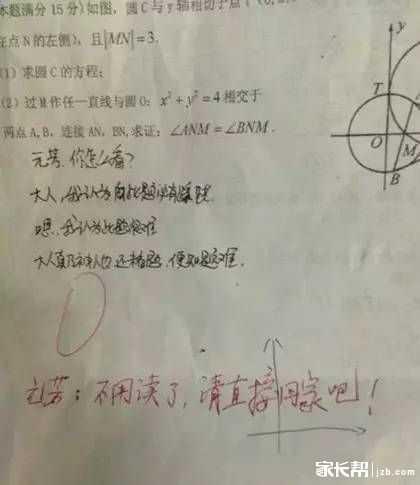 本题满分15分)如图,圆C与y轴相切于点T(0,2
在点N的左侧),且|MN|=3.
(1)求圆C的方程;
(2)过M作任一直线与圆O:x²+y²=4相交于
两点A,B,连接AN,BN,求证:∠ANM=∠BNM.
y
T
O
M
A
B
元芳,你怎么看?
大人,我认为此题必有蹊跷.
嗯,我认为此题很难
大人真乃神人也,还看题,便知题难.
元芳:不用读了,请直接回家吧!
家长帮 jzb.com